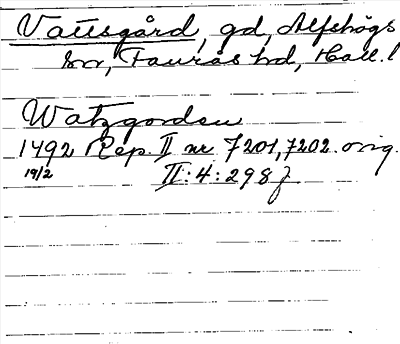 Vattsgård, gd, Alfshögs
sn, Faurås hd, Hall. l
Watzgorden
1492 Rep. II nr 7201, 7202. orig.
19/2 II: 4: 298 f